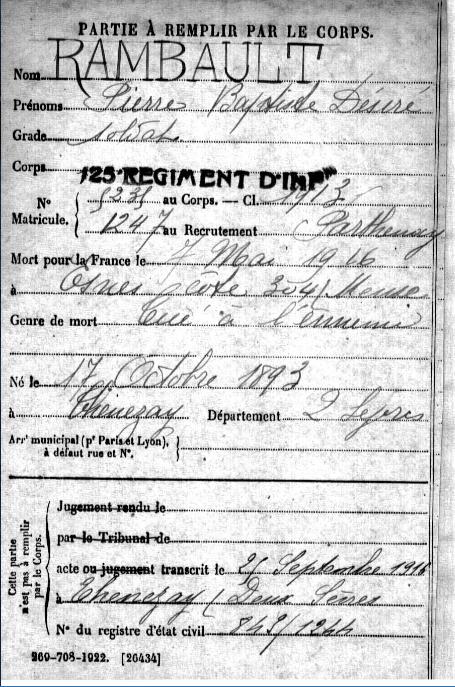 PARTIE À REMPLIR PAR LE CORPS.
Nom RAMBAULT
Prénoms Pierre Baptiste Désiré
Grade soldat
Corps 125 REGIMENT D'INFie
N° Matricule. { au Corps. — Cl. 1913
1247 au Recrutement Parthenay
Mort pour la France le 7 Mai 1916
à côte 304 Meuse
Genre de mort Tué à l'ennemi
Né le 17 Octobre 1893
à Thénezay Département 2 Sèvres
Arrt municipal (pr Paris et Lyon),
à défaut rue et N°.
Cette partie n'est pas à remplir par le Corps.
Jugement rendu le
par le Tribunal de
acte ou jugement transcrit le 21 Septembre 1916
à Thenezay (Deux Sèvres
N° du registre d'état civil 849/1244
269-708-1922. [26434]